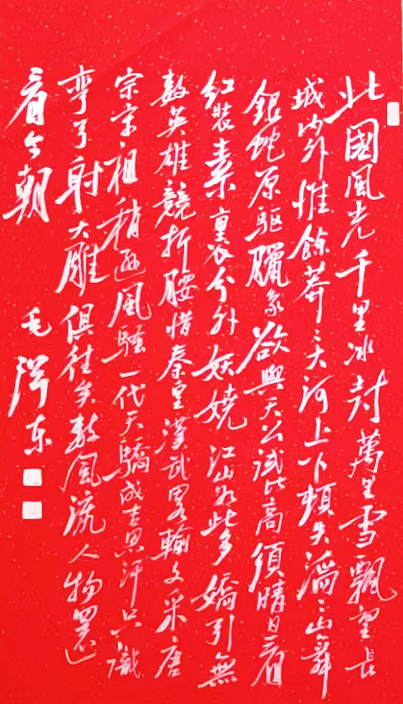 北國風光千里冰封萬里雪飄望長
城內外惟餘莽〻大河上下頓失滔〻山舞
銀蛇原驅臘象欲與天公試比高須晴日看
紅裝素裹分外妖嬈江山如此多嬌引無
數英雄競折腰惜秦皇漢武略輸文采唐
宗宋祖稍遜風騷一代天驕成吉思汗只識
彎弓射大雕俱往矣數風流人物還
看今朝 毛澤東